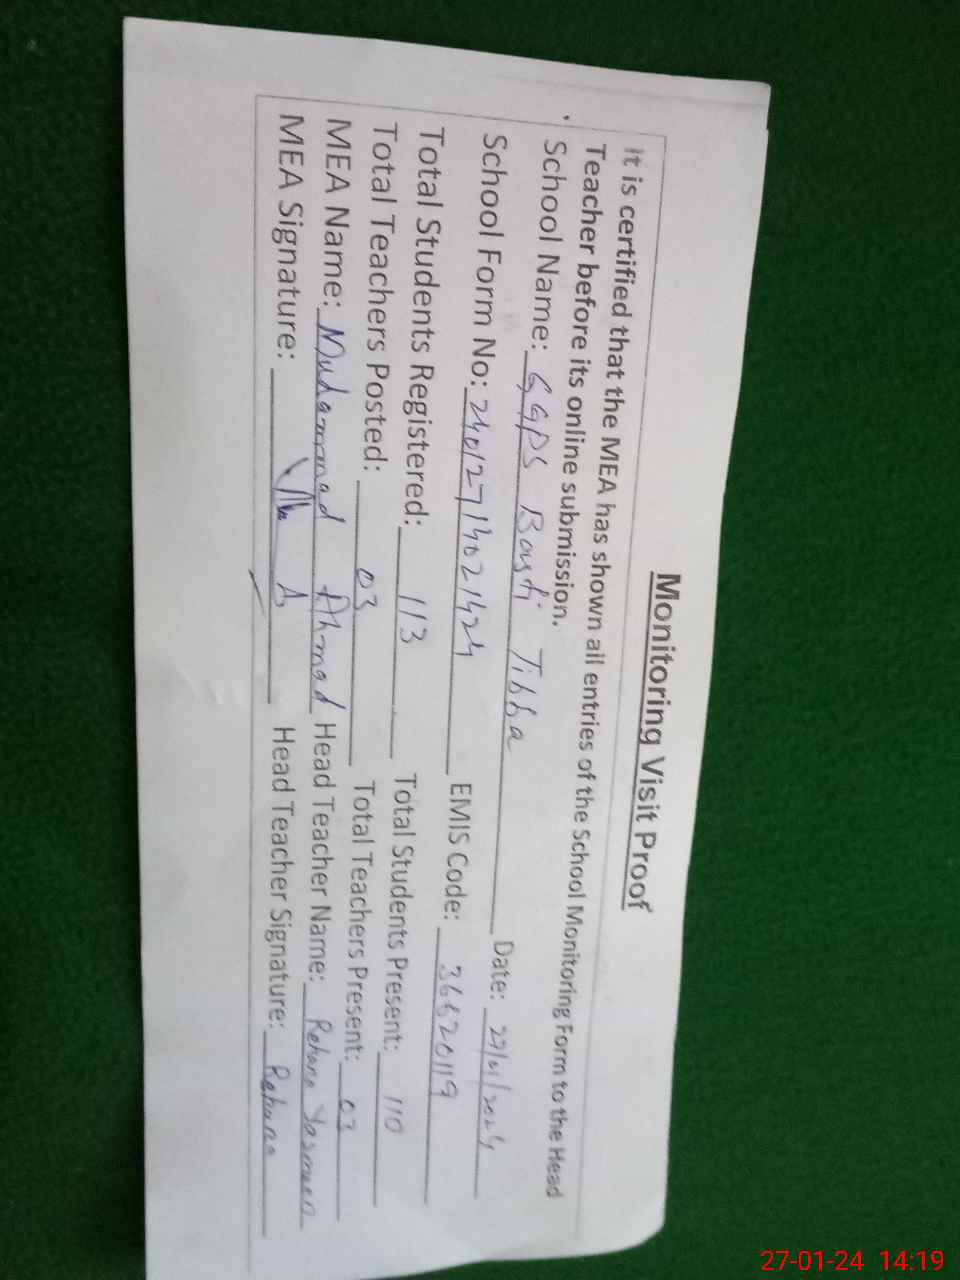 Monitoring Visit Proof
It is certified that the MEA has shown all entries of the School Monitoring Form to the Head
Teacher before its online submission.
School Name: GGPS Basti Tibba Date: 27/01/2024
School Form No: 240127 EMIS Code: 36620119
Total Students Registered: 113 Total Students Present: 110
Total Teachers Posted: 03 Total Teachers Present: 03
MEA Name: Muhammad Ahmad Head Teacher Name: Rehana Yasmeen
MEA Signature: Head Teacher Signature: Rehana
27-01-24 14:19